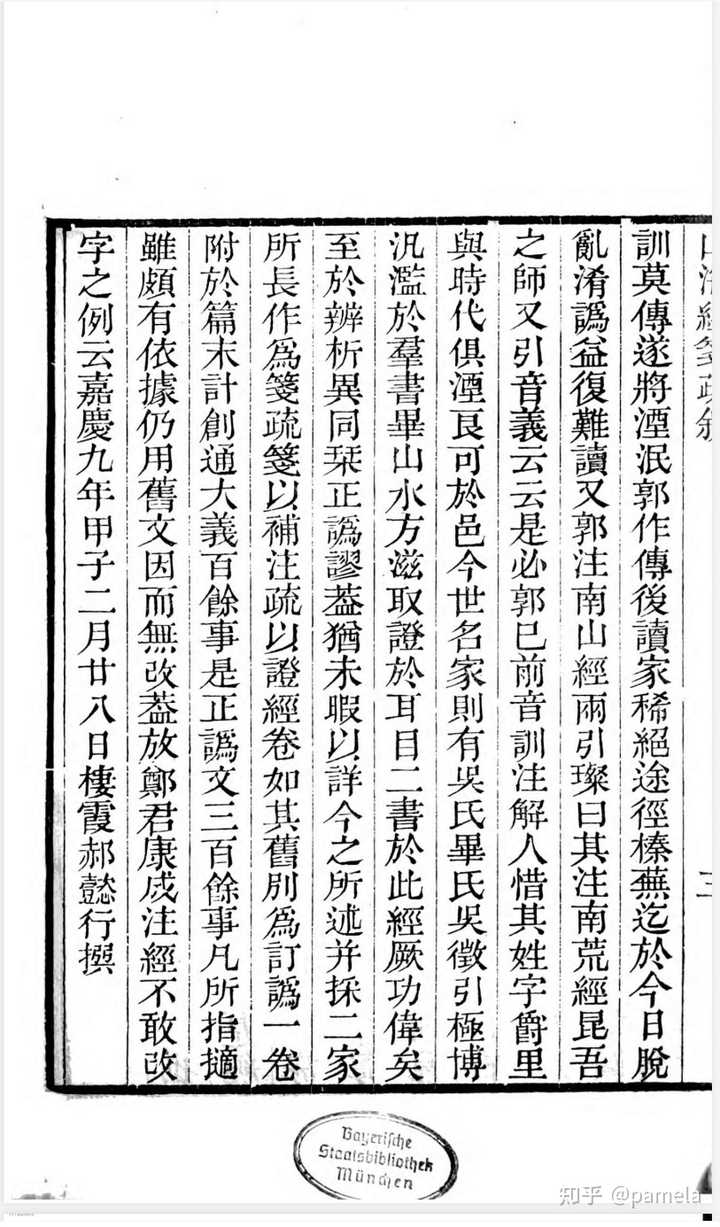 山海經箋疏敘
三
訓莫傳遂將湮泯郭作傳後讀家稀絕途徑榛蕪迄於今日脫
亂淆譌益復難讀又郭注南山經兩引璨曰其注南荒經昆吾
之師又引音義云云是必郭已前音訓注解人惜其姓字爵里
與時代俱湮良可於邑今世名家則有吳氏畢氏吳徵引極博
汎濫於羣書畢山水方滋取證於耳目二書於此經厥功偉矣
至於辨析異同栞正譌謬葢猶未暇以詳今之所述并採二家
所長作為箋疏箋以補注疏以證經卷如其舊別為訂譌一卷
附於篇末計創通大義百餘事是正譌文三百餘事凡所指擿
雖頗有依據仍用舊文因而無改葢放鄭君康成注經不敢改
字之例云嘉慶九年甲子二月廿八日棲霞郝懿行撰
Bayerische
Staatsbibliothek
München
知乎 @pamela